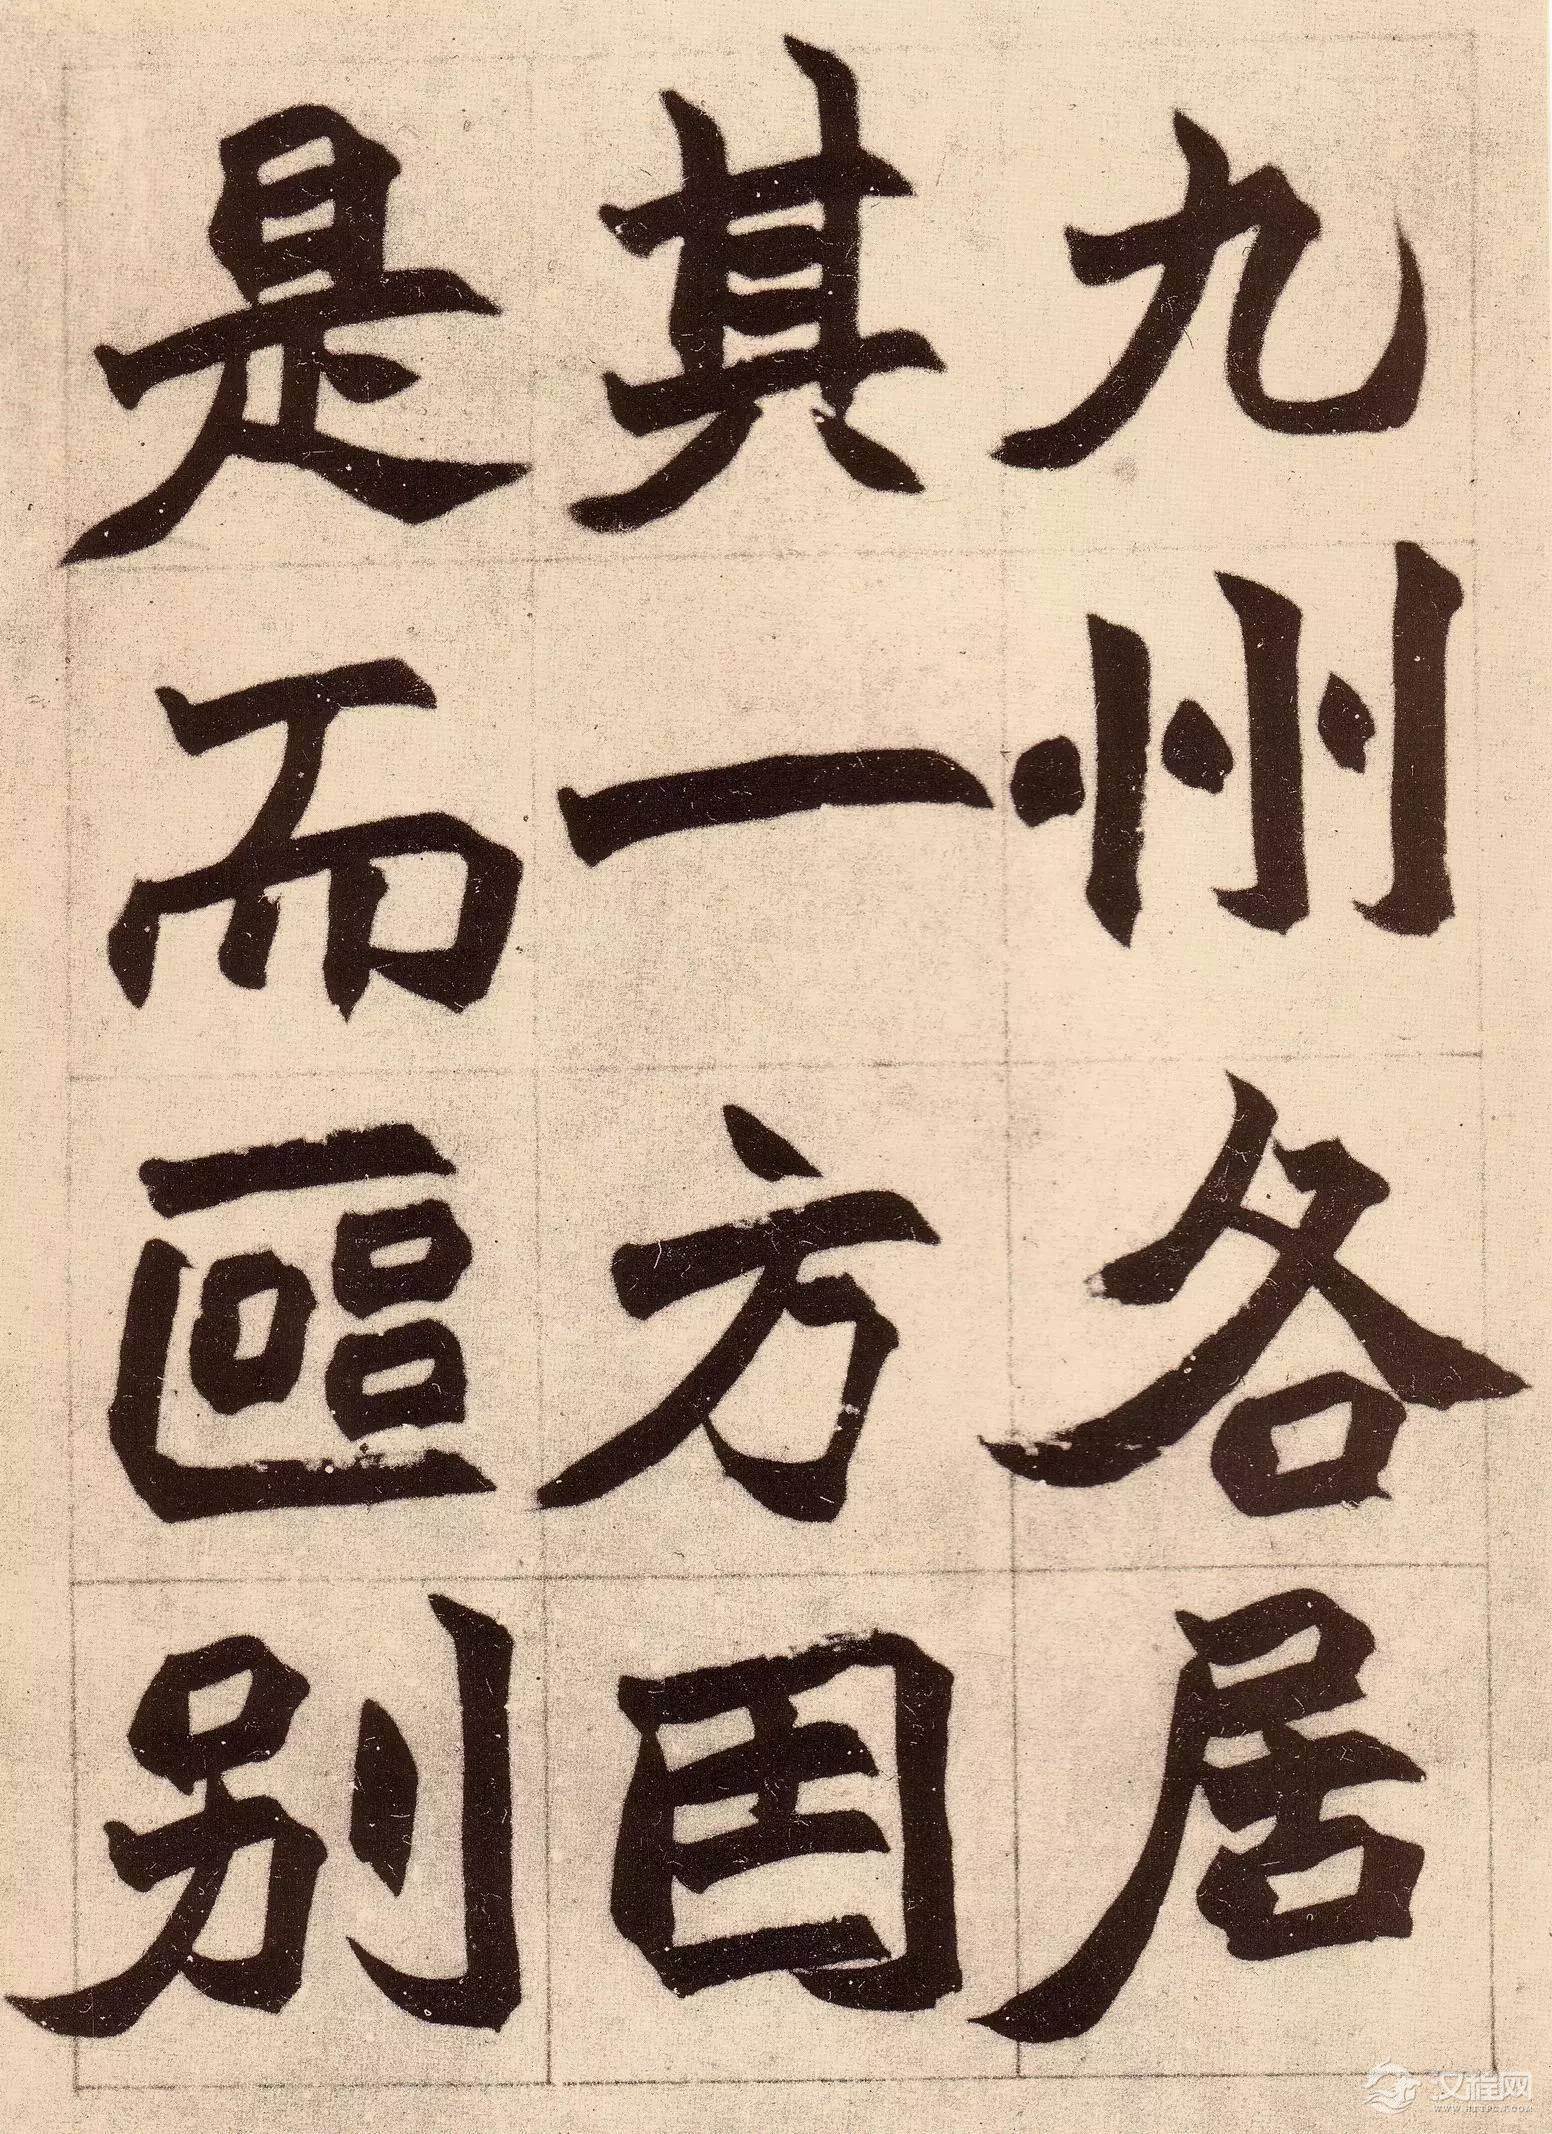 九州各居
其一方囙
是而區别
汉程网